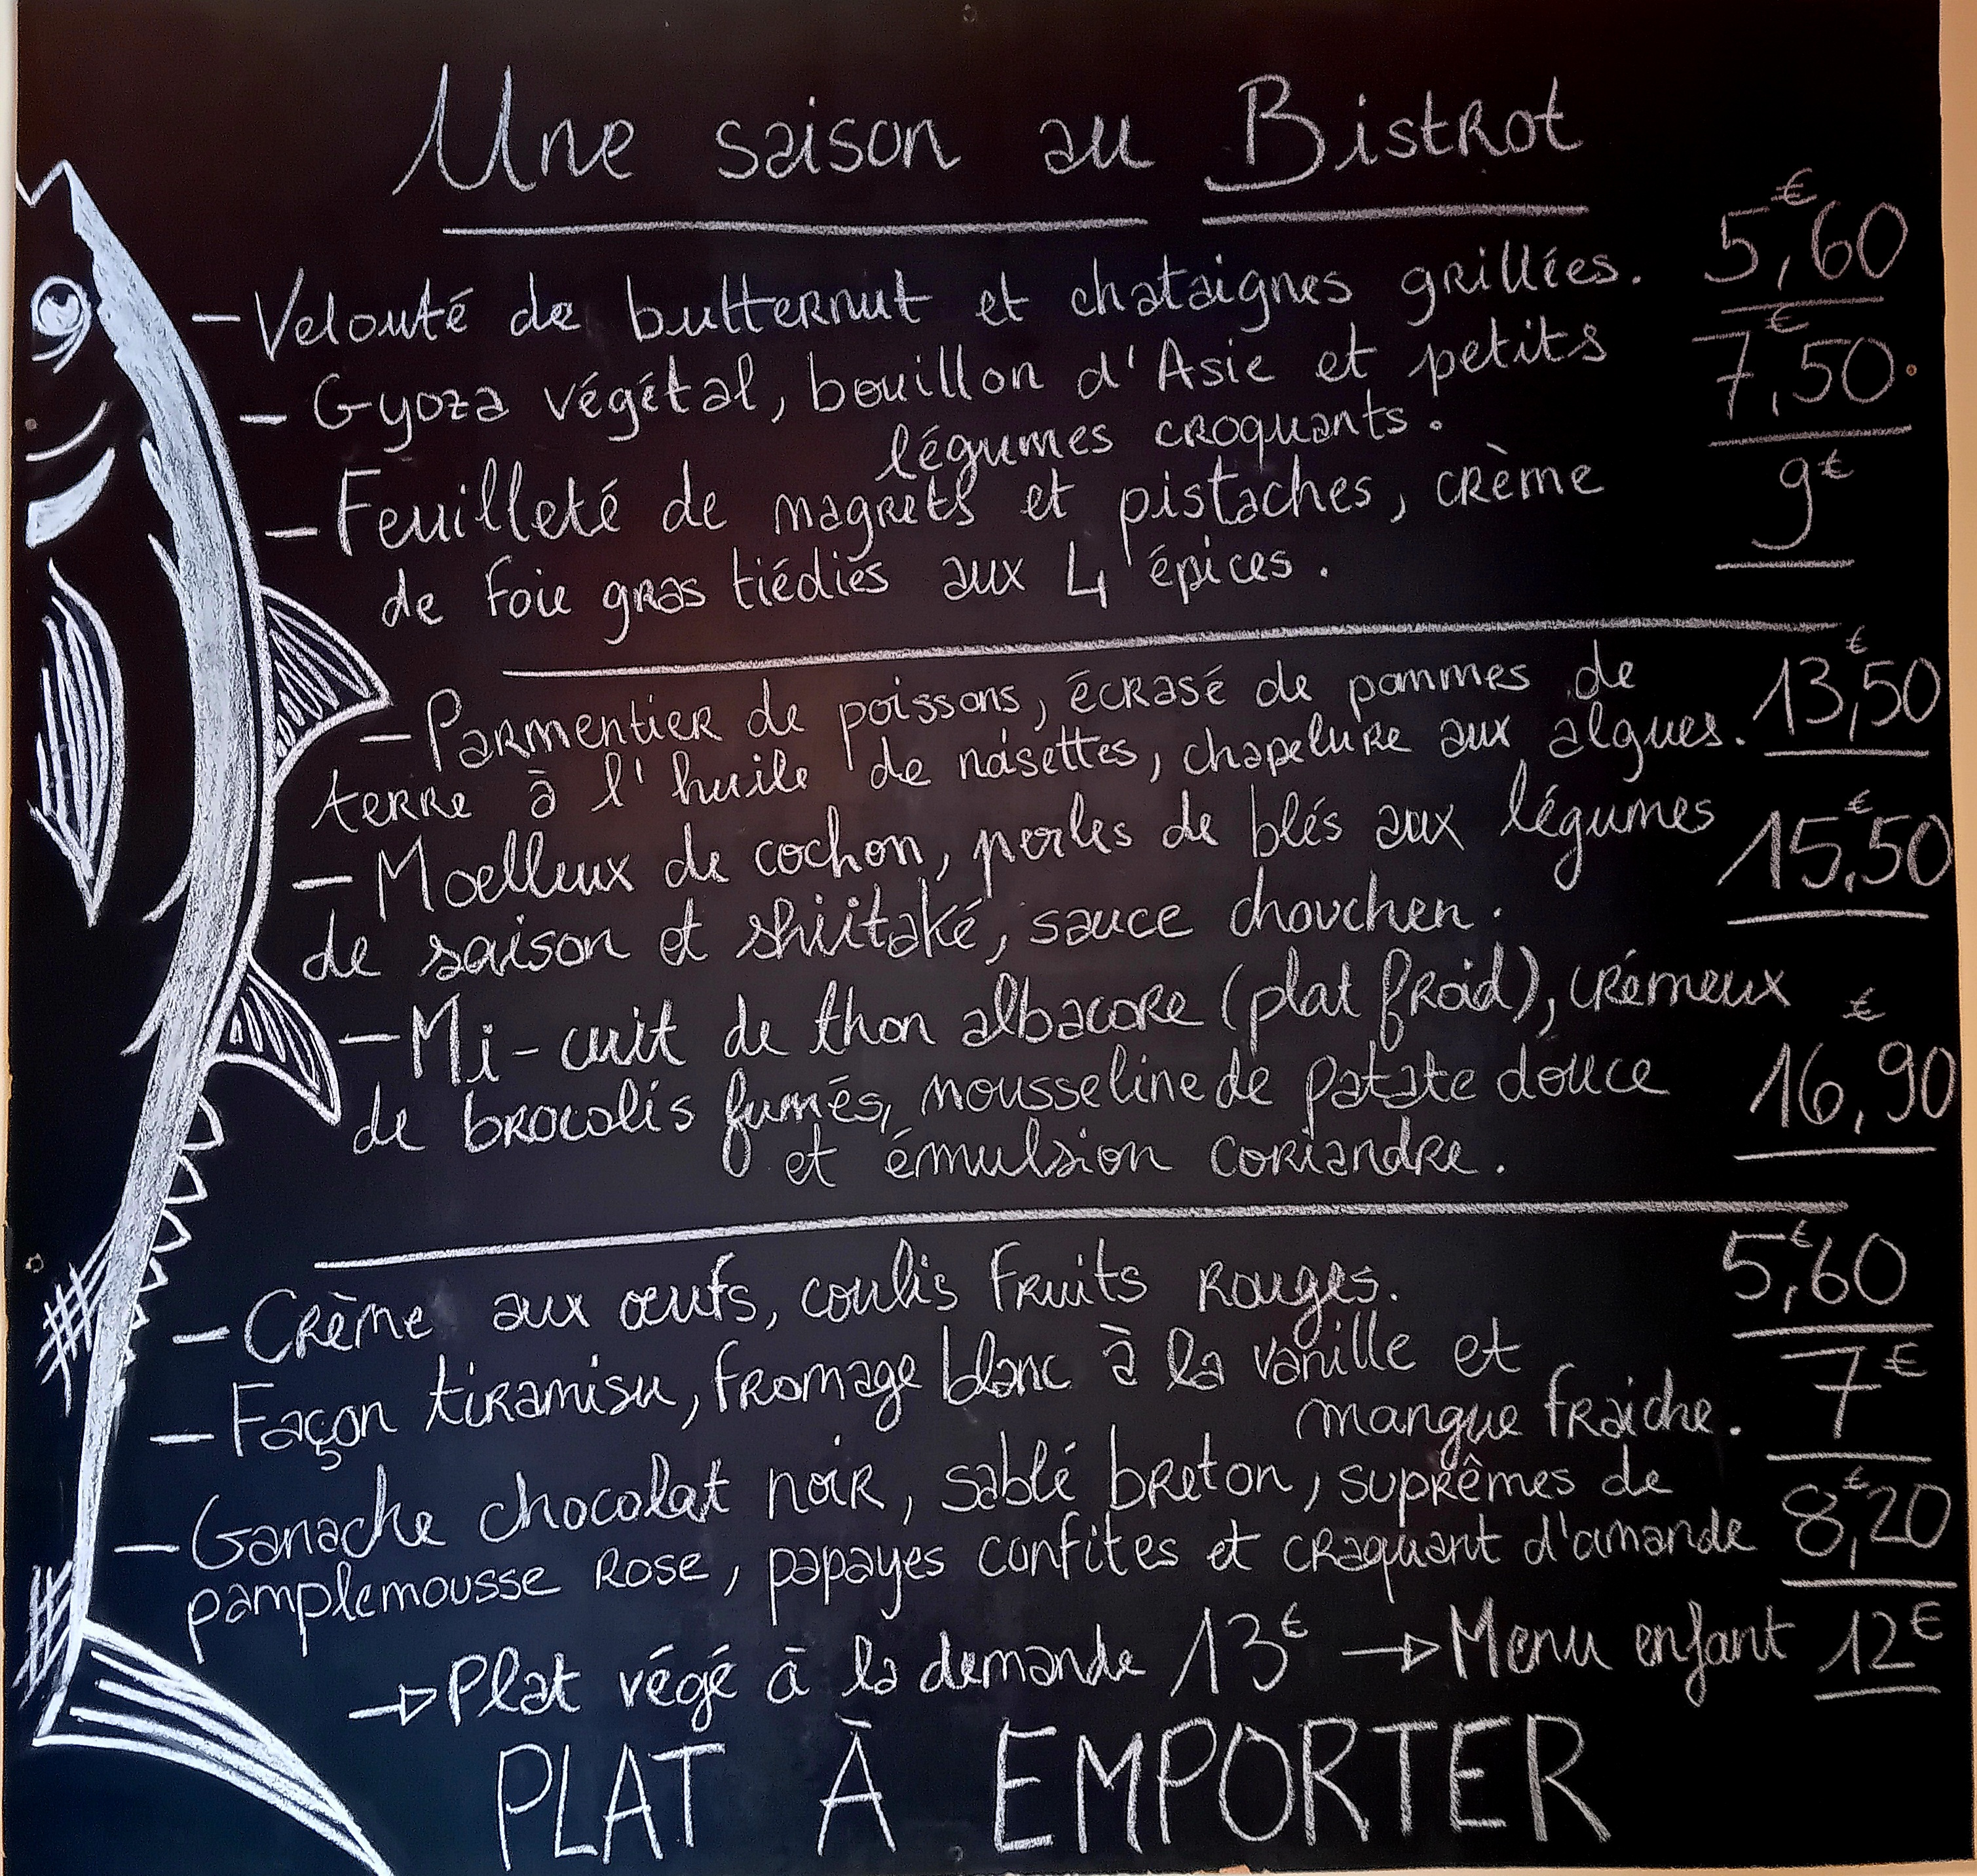 Une saison au Bistrot
- Velouté de butternut et chataignes grillées. 5,60€
- Gyoza végétal, bouillon d'Asie et petits 7,50€
légumes croquants.
- Feuilleté de magrets et pistaches, crème 9€
de foie gras tiédies aux 4 épices.
- Parmentier de poissons, écrasé de pommes de 13,50€
terre à l'huile de noisettes, chapelure aux algues.
- Moelleux de cochon, perles de blés aux légumes 15,50€
de saison et shiitaké, sauce chouchen.
- Mi-cuit de thon albacore (plat froid), crémeux
de brocolis fumés, mousseline de patate douce 16,90€
et émulsion coriandre.
- Crème aux œufs, coulis fruits rouges. 5,60€
- Façon tiramisu, fromage blanc à la vanille et 7€
mangue fraiche.
- Ganache chocolat noir, sablé breton, suprêmes de 8,20€
pamplemousse rose, papayes confites et craquant d'amande
→ Plat végé à la demande 13€ → Menu enfant 12€
PLAT À EMPORTER